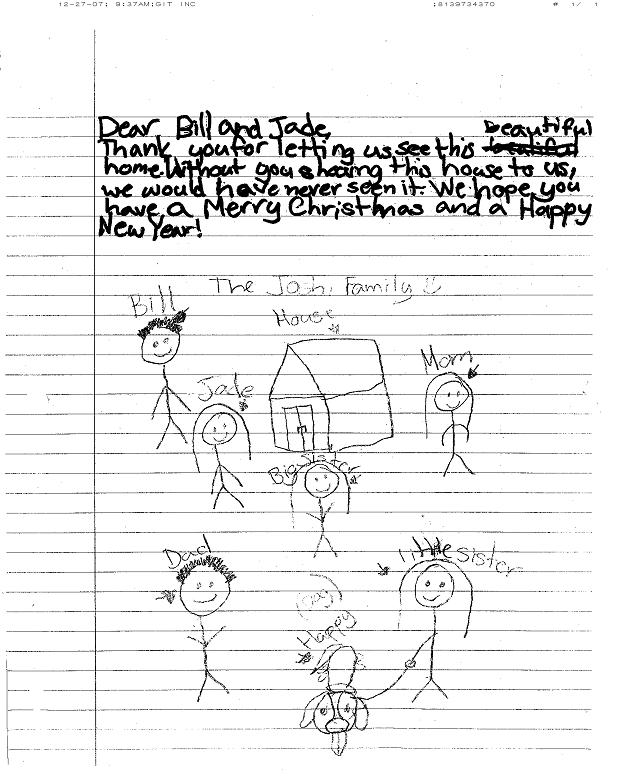 12-27-07; 9:37AM;GIT INC ;8139734370 # 1/ 1
Dear Bill and Jade,
Thank you for letting us see this beautiful
home. Without you showing this house to us,
we would have never seen it. We hope you
have a Merry Christmas and a Happy
New Year!
The Joshi Family
Bill
House
Mom
Jade
Big Sister
Dad
little sister
(Dog)
Happy